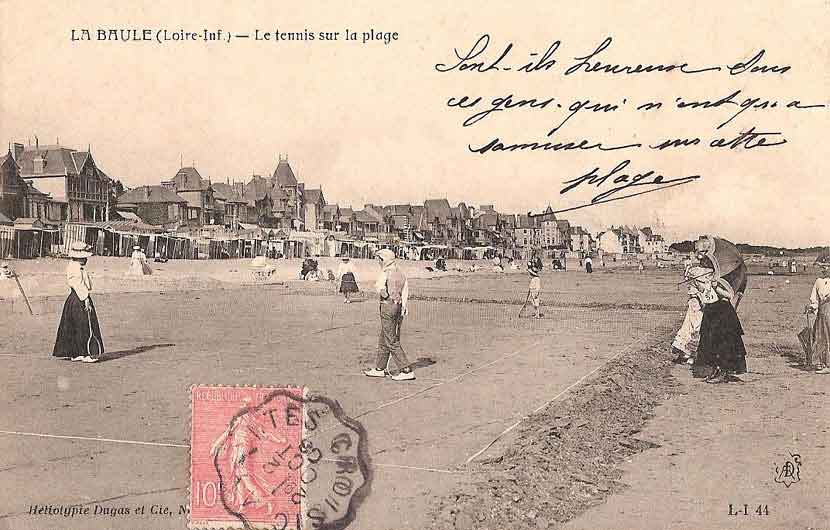 LA BAULE (Loire-Inf.) — Le tennis sur la plage
Sont-ils heureuse dans
ces gens-qui n'ont qu'a
s'amuser sur cette
plage
RÉPUBLIQUE
10
Héliotypie Dugas et Cie, N
L-I 44